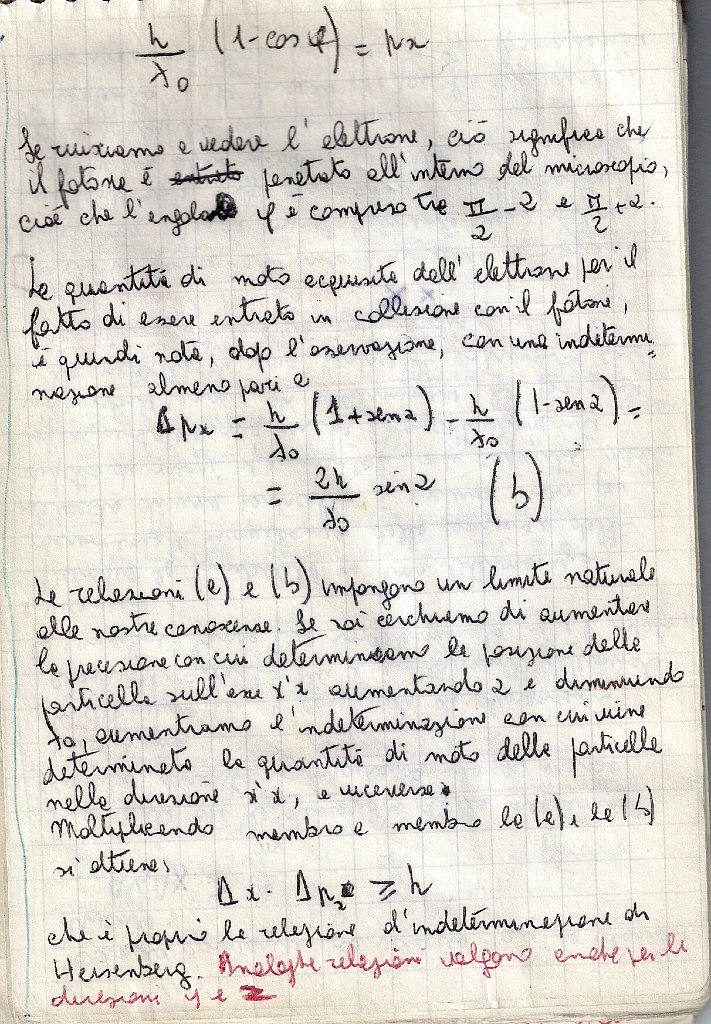 h/λ₀ (1-cos φ) = px
Se riusciamo a vedere l'elettrone, ciò significa che
il fotone è entrato penetrato all'interno del microscopio,
cioè che l'angolo φ è compreso tra π/2 - α e π/2 + α.
La quantità di moto acquisita dall'elettrone per il
fatto di essere entrato in collisione con il fotone,
è quindi nota, dopo l'osservazione, con una indetermi=
nazione almeno pari a
Δpx = h/λ₀ (1+sen α) - h/λ₀ (1-sen α) =
= 2h/λ₀ sin α (b)
Le relazioni (a) e (b) impongono un limite naturale
alle nostre conoscenze. Se noi cerchiamo di aumentare
la precisione con cui determiniamo la posizione della
particella sull'asse x'x aumentando α e diminuendo
λ₀, aumentiamo l'indeterminazione con cui viene
determinata la quantità di moto della particella
nella direzione x'x, e viceversa.
Moltiplicando membro a membro la (a) e la (b)
si ottiene,
Δx · Δpx ≥ h
che è proprio la relazione d'indeterminazione di
Heisenberg. Analoghe relazioni valgono anche per le
direzioni y e z